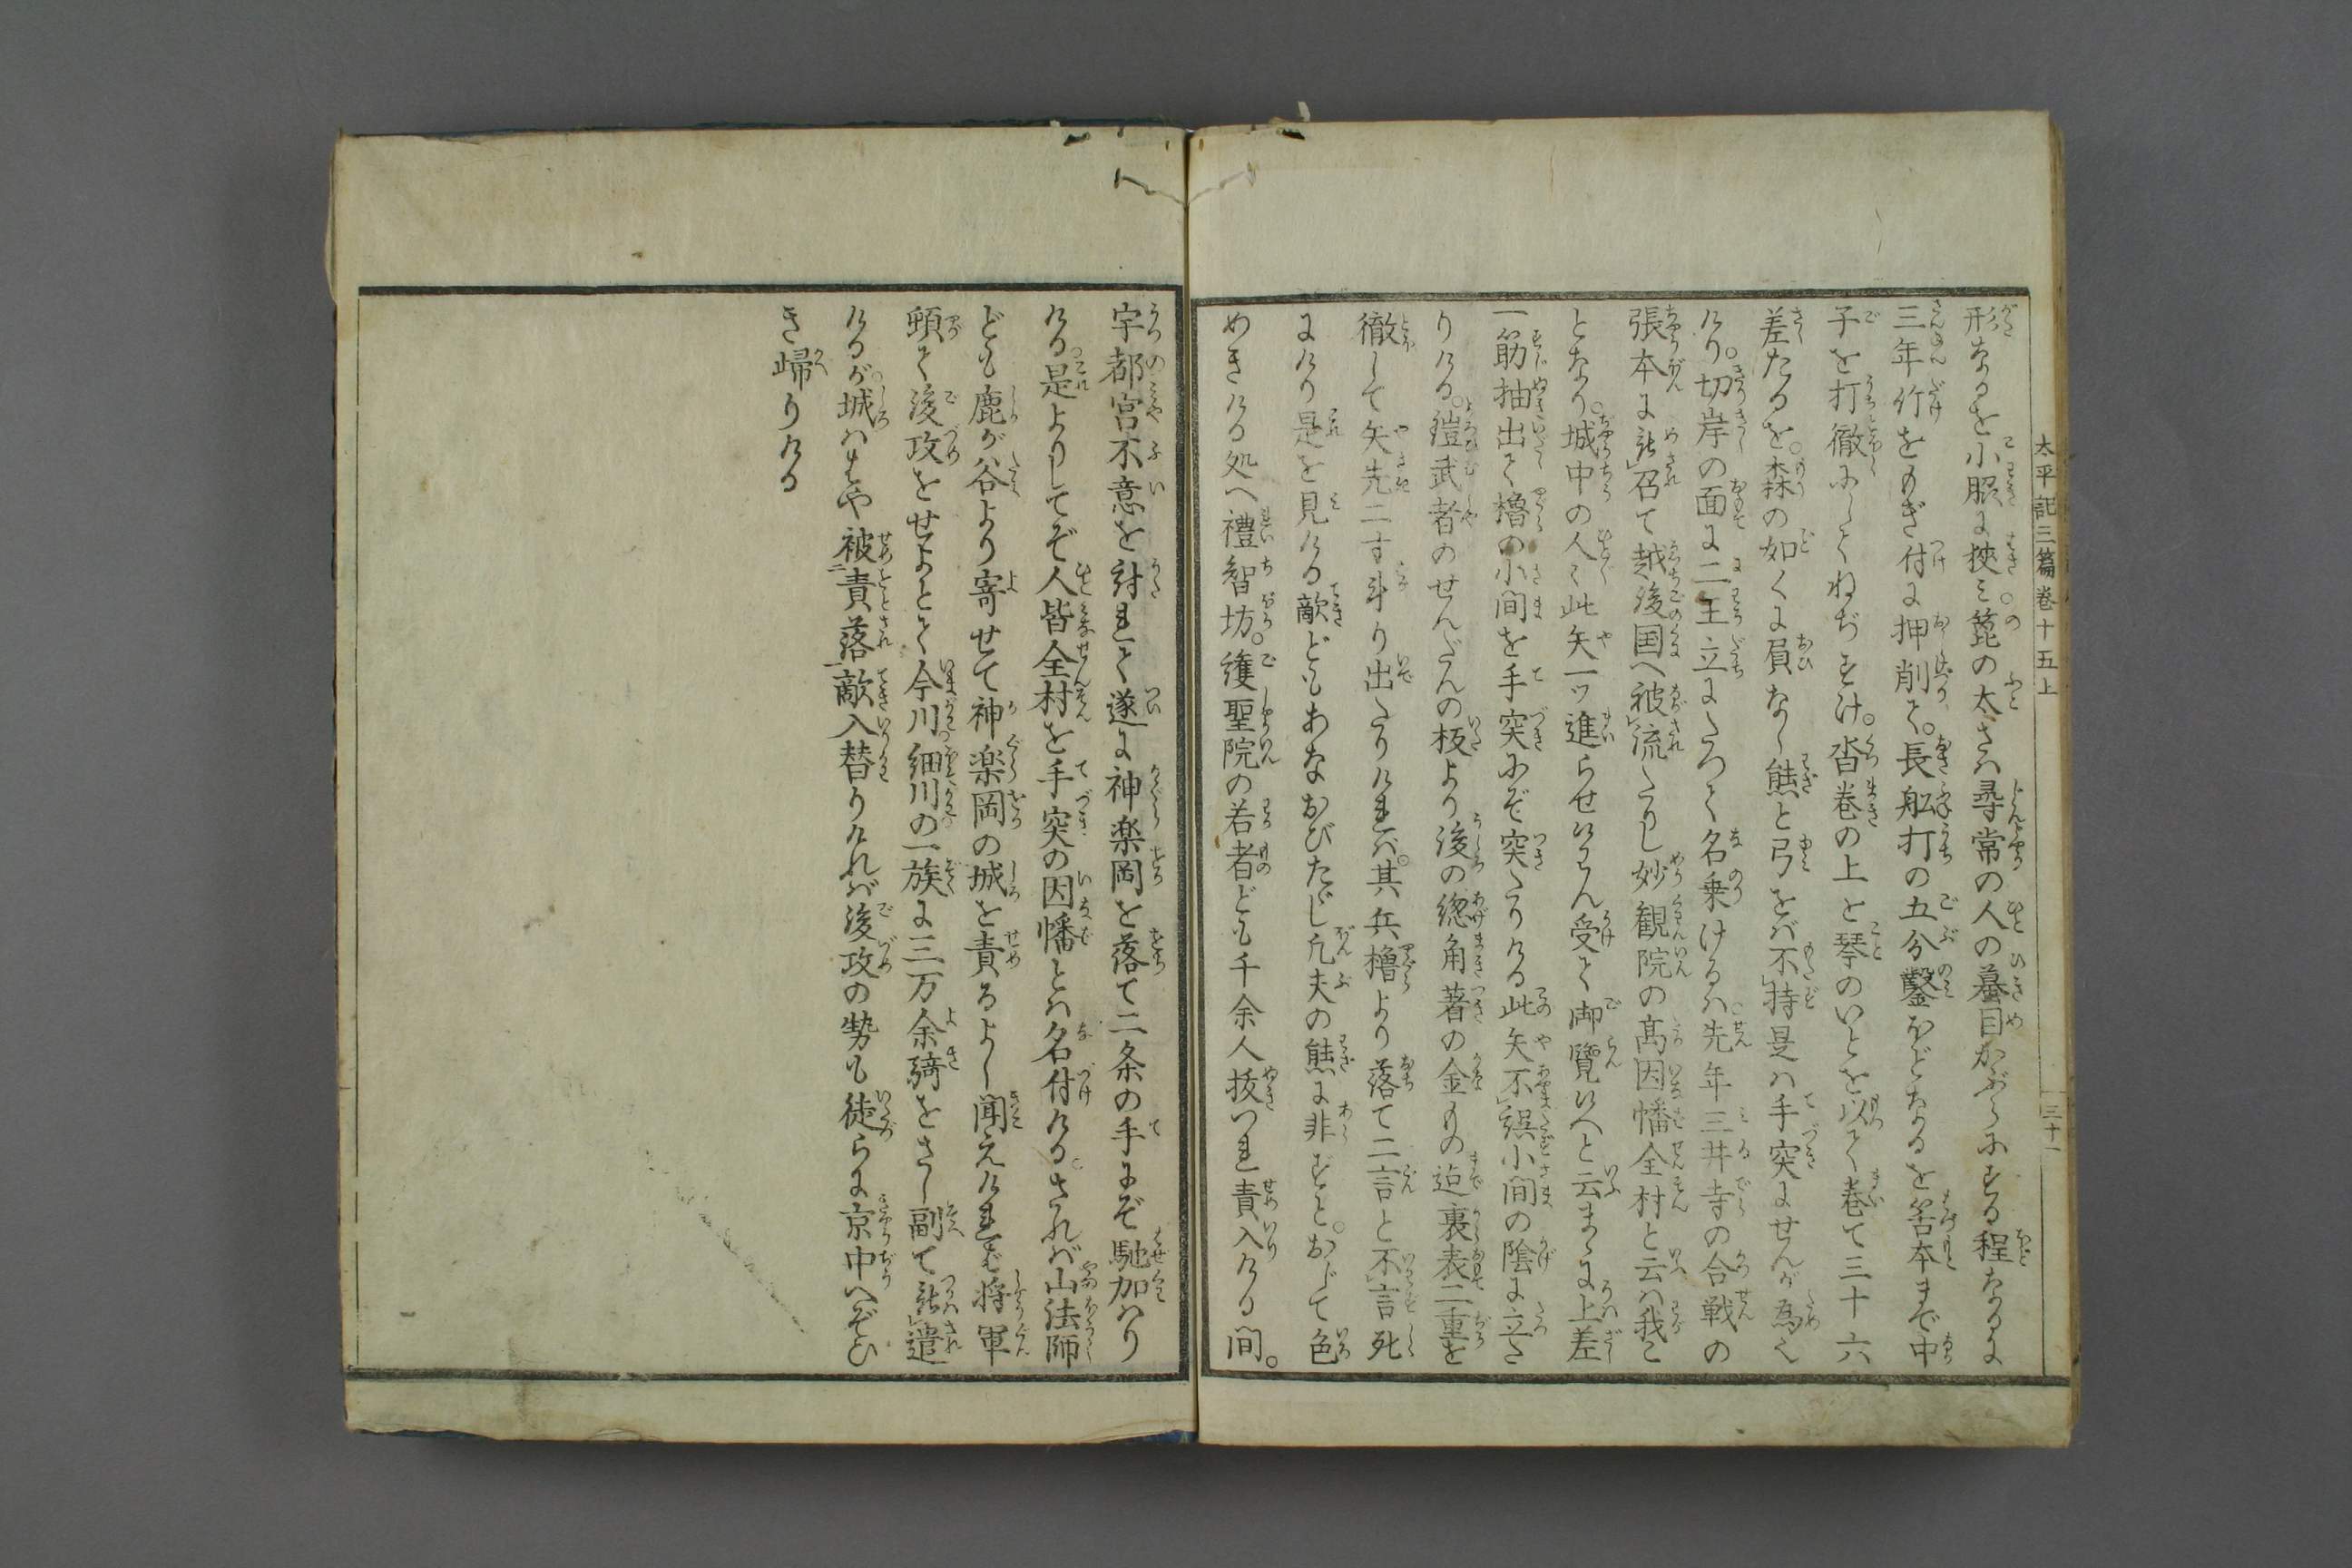 太平記三篇巻十五上
三十一
形なるを小脇に挟み。箆の太さは尋常の人の蟇目がぶらにする程なるに
三年竹をもぎ付に押削て。長舩打の五分鑿ほどなるを筈本まで中
子を打徹にしてねぢすげ。沓巻の上を琴のいとを以て巻て三十六
差たるを。森の如くに負なし態と弓をば不持是は手突にせんが為也
けり。切岸の面に二王立にたつて名乗けるは。先年三井寺の合戦の
張本に被召て越後国へ被流たりし妙観院の高因幡全村と云は我こ
となり。城中の人々此矢一ツ進らせ候はん受て御覧候へと云まゝに上差
一筋抽出て櫓の小間を手突にぞ突たりける此矢不誤小間の陰に立た
りける。鎧武者のせんだんの板より後の総角著の金物迄裏表二重を
徹して矢先二寸斗り出たりければ。其兵櫓より落て二言と不言死
にけり是を見ける敵どもあなおびたゞし凡夫の態に非ずと。おじて色
めきける処へ禮智坊。護聖院の若者ども千余人抜つれ責入ける間。
宇都宮不意を討れて遂に神楽岡を落て二条の手にぞ馳加はり
ける是よりしてぞ人皆全村を手突の因幡とは名付ける。されば山法師
ども鹿が谷より寄せて神楽岡の城を責るよし聞えければ将軍
頓て後攻をせよとて今川細川の一族に三万余騎をさし副て被遣
けるが。城はもや被責落敵入替りければ後攻の勢も徒らに京中へぞひ
き帰りける